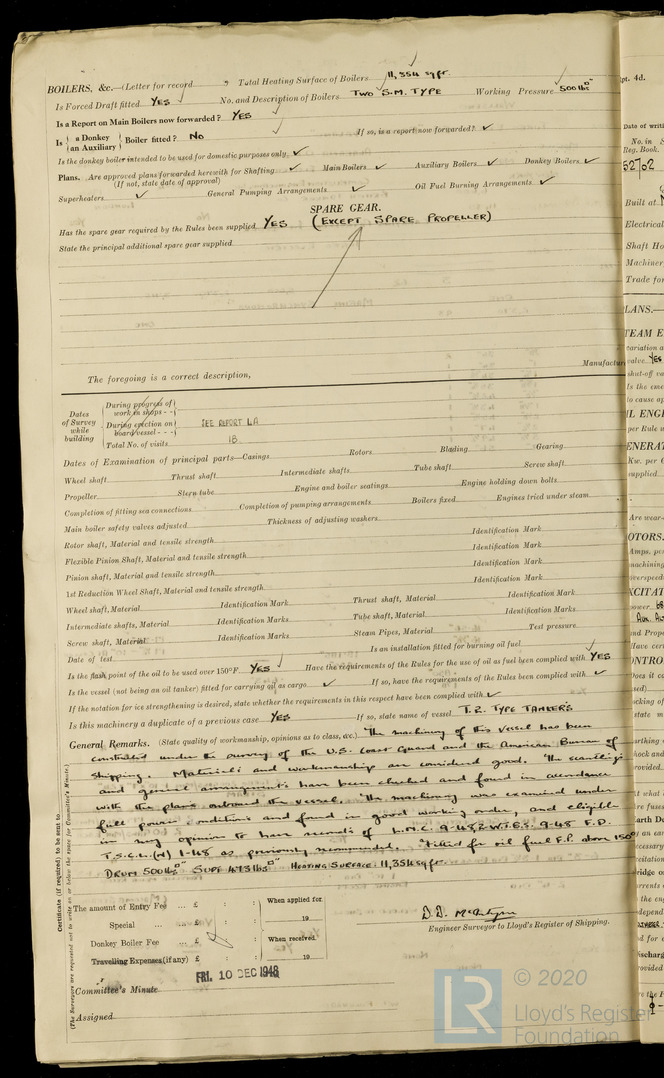 BOILERS, &c.—(Letter for record " Total Heating Surface of Boilers 11,354 sq ft.
Is Forced Draft fitted YES ✓ No. and Description of Boilers TWO S.M. TYPE Working Pressure 500 lbs □"
Is a Report on Main Boilers now forwarded? YES
Is { a Donkey / an Auxiliary } Boiler fitted? No ✓ If so, is a report now forwarded? ✓
Is the donkey boiler intended to be used for domestic purposes only ✓
Plans. Are approved plans forwarded herewith for Shafting ✓ Main Boilers ✓ Auxiliary Boilers ✓ Donkey Boilers ✓
(If not, state date of approval)
Superheaters ✓ General Pumping Arrangements ✓ Oil Fuel Burning Arrangements ✓
SPARE GEAR.
Has the spare gear required by the Rules been supplied YES (EXCEPT SPARE PROPELLER)
State the principal additional spare gear supplied
The foregoing is a correct description,
Manufactur
Dates of Survey while building
During progress of work in shops - -
During erection on board vessel - - - SEE REPORT 4A
Total No. of visits 18
Dates of Examination of principal parts—Casings Rotors Blading Gearing
Wheel shaft Thrust shaft Intermediate shafts Tube shaft Screw shaft
Propeller Stern tube Engine and boiler seatings Engine holding down bolts
Completion of fitting sea connections Completion of pumping arrangements Boilers fixed Engines tried under steam
Main boiler safety valves adjusted Thickness of adjusting washers
Rotor shaft, Material and tensile strength Identification Mark
Flexible Pinion Shaft, Material and tensile strength Identification Mark
Pinion shaft, Material and tensile strength Identification Mark
1st Reduction Wheel Shaft, Material and tensile strength Identification Mark
Wheel shaft, Material Identification Mark Thrust shaft, Material Identification Mark
Intermediate shafts, Material Identification Marks Tube shaft, Material Identification Marks
Screw shaft, Material Identification Marks Steam Pipes, Material Test pressure
Date of test Is an installation fitted for burning oil fuel ✓
Is the flash point of the oil to be used over 150°F. YES ✓ Have the requirements of the Rules for the use of oil as fuel been complied with YES
Is the vessel (not being an oil tanker) fitted for carrying oil as cargo ✓ If so, have the requirements of the Rules been complied with ✓
If the notation for ice strengthening is desired, state whether the requirements in this respect have been complied with ✓
Is this machinery a duplicate of a previous case YES If so, state name of vessel T.2. TYPE TANKERS
General Remarks. (State quality of workmanship, opinions as to class, &c.) The machinery of this vessel has been
constructed under the survey of the U.S. Coast Guard and the American Bureau of
Shipping. Materials and workmanship are considered good. The scantlings
and general arrangements have been checked and found in accordance
with the plans onboard the vessel. The machinery was examined under
full power conditions and found in good working order, and eligible
in my opinion to have records of L.M.C. 9-48, 2 W.T.B.S. 9-48 F.D.
T.S.C.L.(N) 1-48 as previously recommended. Fitted for oil fuel F.P. above 150°
DRUM 500 lbs □" SUPR 473 lbs □" HEATING SURFACE: 11,354 sq ft.
The amount of Entry Fee ... £ : : When applied for,
Special ... £ : : 19
Donkey Boiler Fee ... £ : : When received,
Travelling Expenses (if any) £ : : 19
Engineer Surveyor to Lloyd's Register of Shipping.
FRI. 10 DEC 1948
Committee's Minute
Assigned
Certificate (if required) to be sent to
(The Surveyors are requested not to write on or below the space for Committee's Minute.)
pt. 4d.
Date of writi
No. in
Reg. Book.
52702
Built at
Electrical
Shaft Ho
Machiner
Trade for
LANS.—
TEAM E
valve YES
© 2020
LR
Lloyd's Register
Foundation